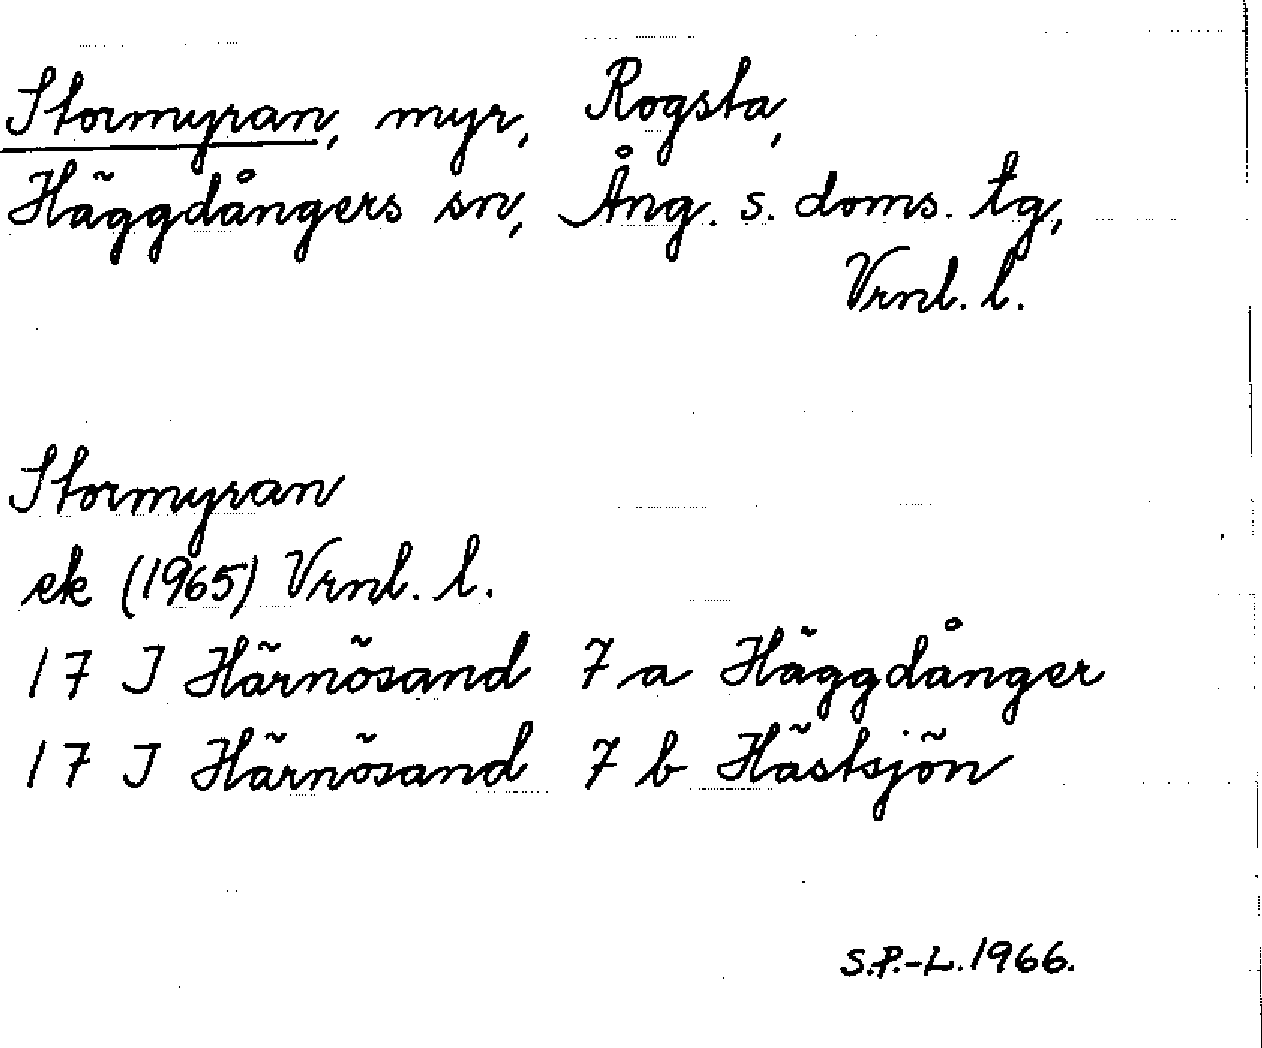 Stormyran, myr, Rogsta,
Häggdångers sn, Ång. s. doms. tg,
Vrnl. l.
Stormyran
ek (1965) Vrnl. l.
17 I Härnösand 7 a Häggdånger
17 I Härnösand 7 b Hästsjön
S.P.-L. 1966.